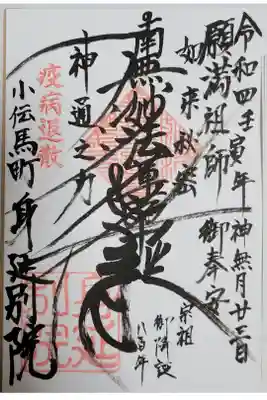 令和四壬寅年 神無月廿三日
願満祖師 御奉安
如来秘密
宗祖
御降誕
八百年
南無妙法蓮華経
神通之力
疫病退散
小伝馬町 身延別院